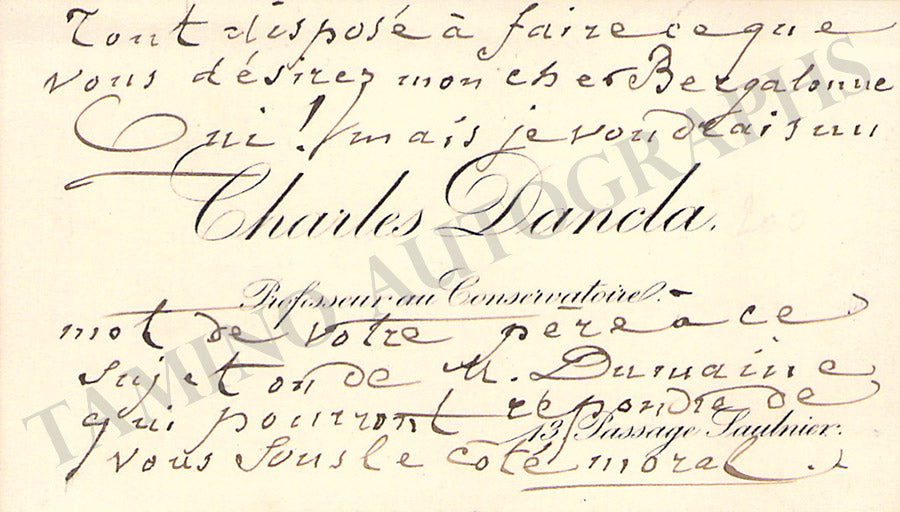 Tout disposé à faire ce que
vous désirez mon cher Bergalonne
Oui! mais je voudrais un
Charles Dancla.
Professeur au Conservatoire.
mot de votre père à ce
sujet ou de M. Dumaine
qui pourront répondre de
13, Passage Saulnier.
vous sous le côté moral.
TAMINO AUTOGRAPHS
200